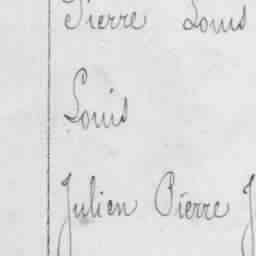 Pierre Louis
Louis
Julien Pierre J